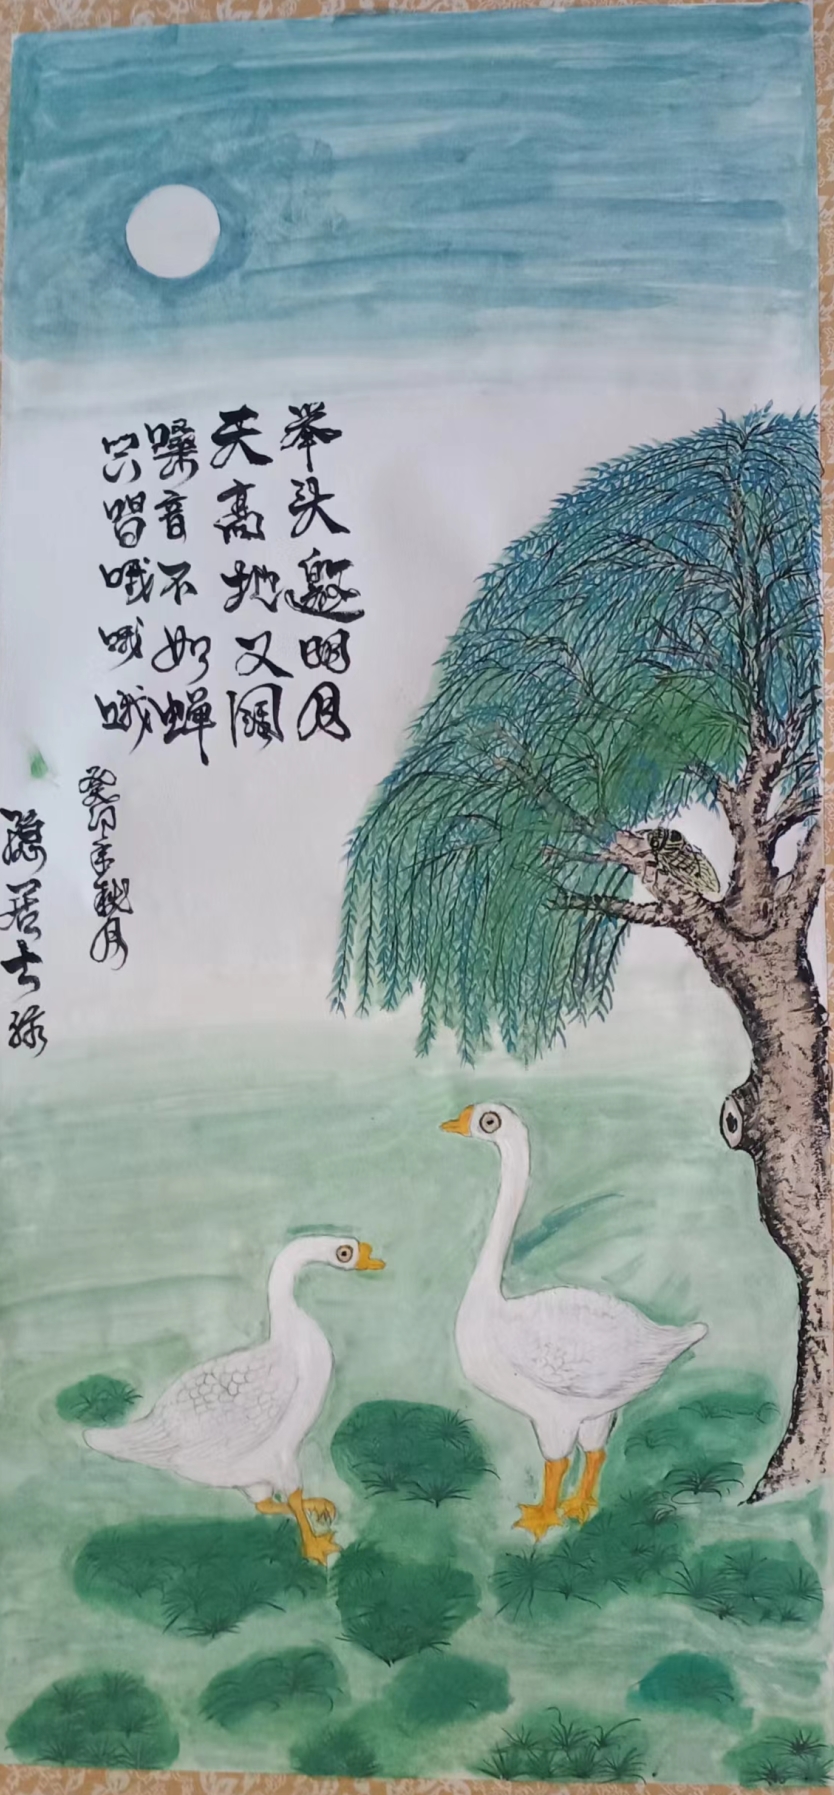 举头邀明月
天高地又阔
噪音不如蝉
只唱哦哦哦
癸卯年秋月
居士